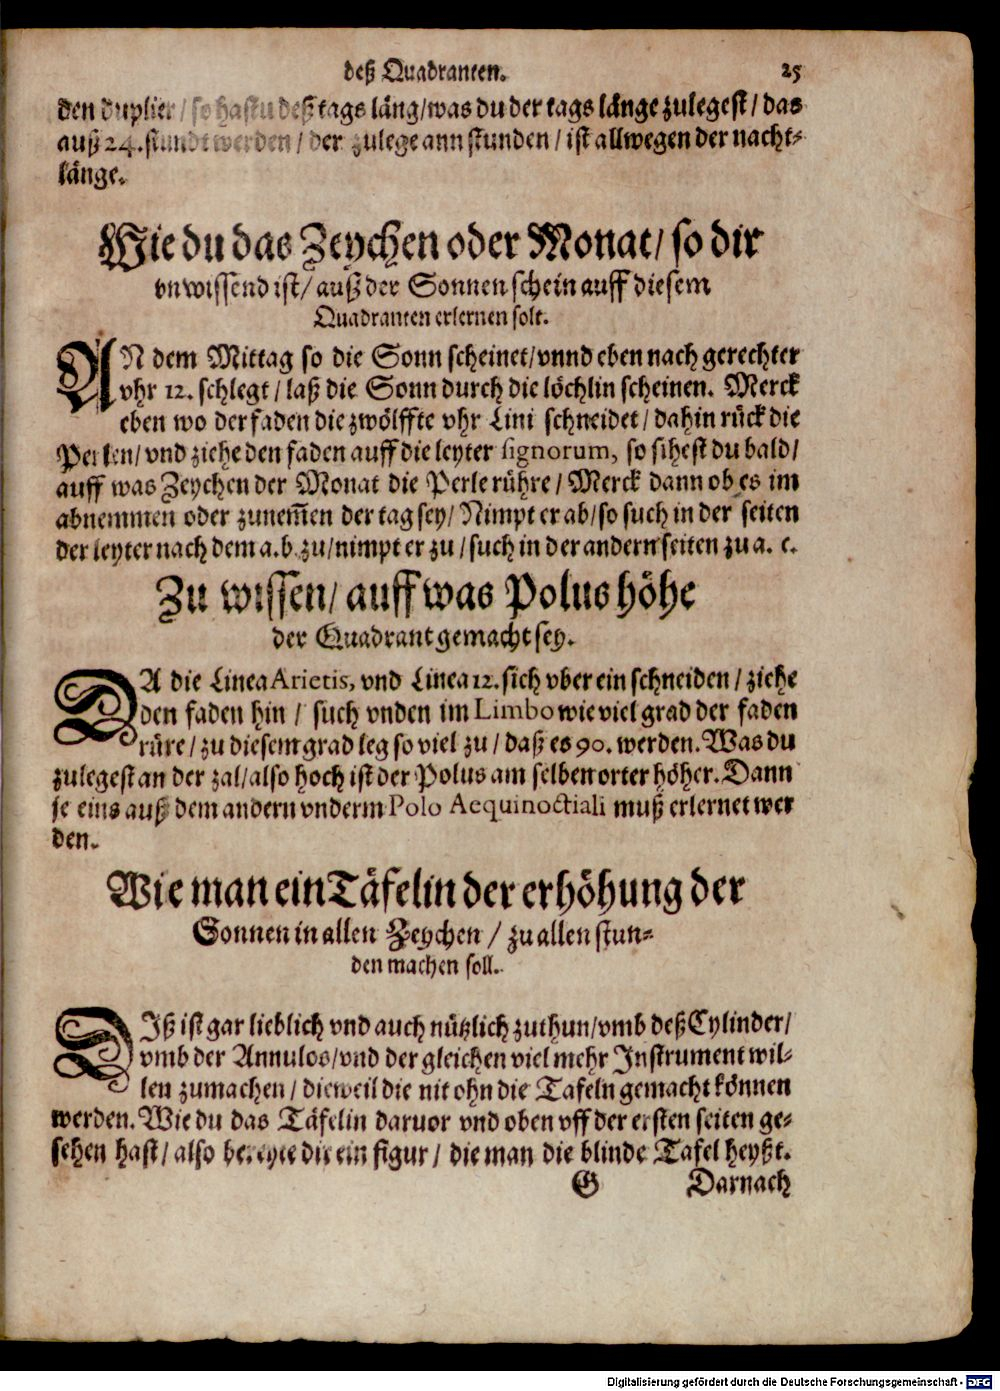 deß Quadranten. 25
den duplier / so hastu deß tags läng / was du der tags länge zulegest / das
auß 24. stundt werden / der zulegeann stunden / ist allwegen der nacht⸗
länge.
Wie du das Zeychen oder Monat / so dir
vnwissend ist / auß der Sonnen schein auff diesem
Quadranten erlernen solt.
AN dem Mittag so die Sonn scheinet / vnnd eben nach gerechter
vhr 12. schlegt / laß die Sonn durch die löchlin scheinen. Merck
eben wo der faden die zwölffte vhr Lini schneidet / dahin rück die
Perlen / vnd ziehe den faden auff die leyter signorum, so sihest du bald /
auff was Zeychen der Monat die Perle rühre / Merck dann ob es im
abnemmen oder zunem̃en der tag sey / Nimpt er ab / so such in der seiten
der leyter nach dem a. b. zu / nimpt er zu / such in der andern seiten zu a. c.
Zu wissen / auff was Polus höhe
der Quadrant gemacht sey.
DA die Linea Arietis, vnd Linea 12. sich vber ein schneiden / ziehe
den faden hin / such vnden im Limbo wie viel grad der faden
rüre / zu diesem grad leg so viel zu / daß es 90. werden. Was du
zulegest an der zal / also hoch ist der Polus am selben orter höher. Dann
je eins auß dem andern vnderm Polo Aequinoctiali muß erlernet wer
den.
Wie man ein Täfelin der erhöhung der
Sonnen in allen Zeychen / zu allen stun⸗
den machen soll.
DIß ist gar lieblich vnd auch nützlich zuthun / vmb deß Cylinder /
vmb der Annulos / vnd der gleichen viel mehr Instrument wil⸗
len zumachen / dieweil die nit ohn die Tafeln gemacht können
werden. Wie du das Täfelin daruor vnd oben vff der ersten seiten ge⸗
sehen hast / also bereyte dir ein figur / die man die blinde Tafel heyßt.
G Darnach
Digitalisierung gefördert durch die Deutsche Forschungsgemeinschaft - DFG